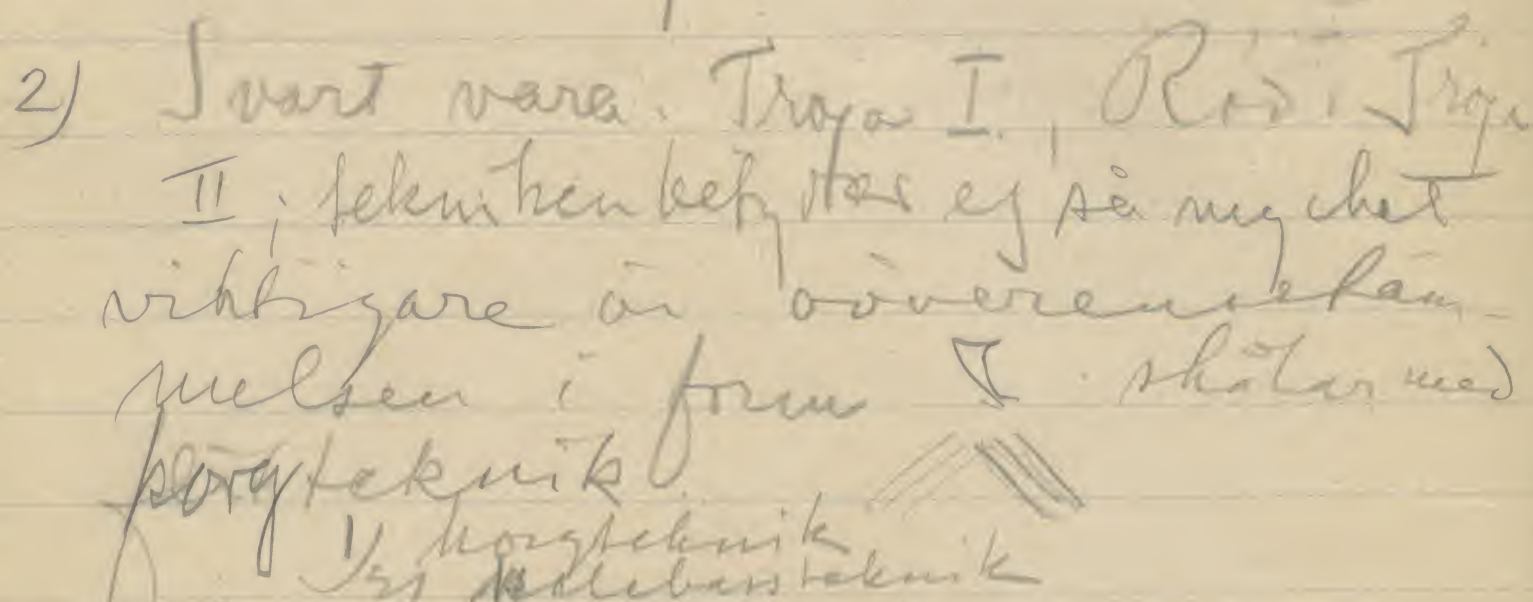 2) Svart vara. Troja I., Röd i Troja
II; tekniken betyder ej så mycket
viktigare är oöverensstäm-
melsen i form skålar med
korgteknik
1) korgteknik
ej teknik